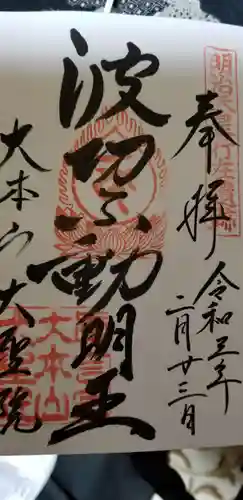 奉拝
令和三年
二月廿三日
波切不動明王
大本山大聖院
大本山